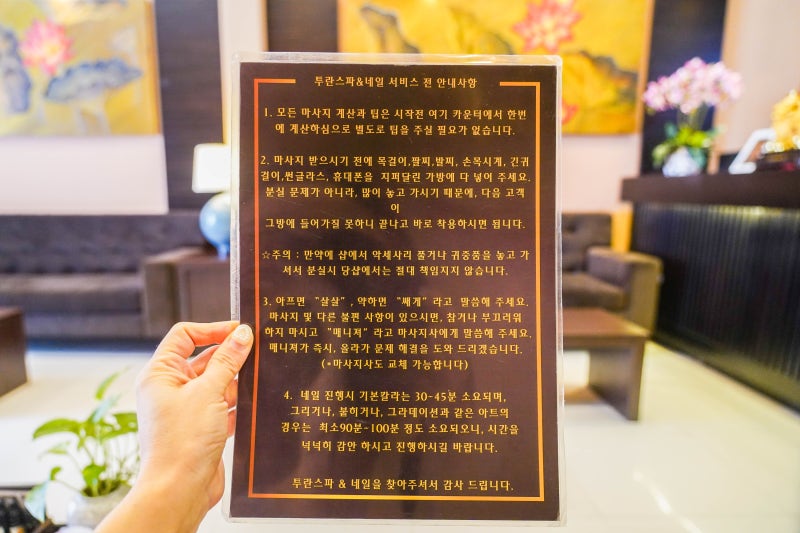 투란스파&네일 서비스 전 안내사항
1. 모든 마사지 계산과 팁은 시작전 여기 카운터에서 한번
에 계산하심으로 별도로 팁을 주실 필요가 없습니다.
2. 마사지 받으시기 전에 목걸이,팔찌,발찌, 손목시계, 긴귀
걸이,썬글라스, 휴대폰을 지퍼달린 가방에 다 넣어 주세요.
분실 문제가 아니라, 많이 놓고 가시기 때문에, 다음 고객
이
그방에 들어가질 못하니 끝나고 바로 착용하시면 됩니다.
☆주의 : 만약에 샵에서 악세사리 풀거나 귀중품을 놓고 가
셔서 분실시 당샵에서는 절대 책임지지 않습니다.
3. 아프면 “살살”, 약하면 “쎄게”라고 말씀해 주세요.
마사지 및 다른 불편 사항이 있으시면, 참거나 부끄러워
하지 마시고 “매니져”라고 마사지사에게 말씀해 주세요.
매니져가 즉시, 올라가 문제 해결을 도와 드리겠습니다.
(*마사지사도 교체 가능합니다)
4. 네일 진행시 기본칼라는 30-45분 소요되며,
그리거나, 붙히거나, 그라데이션과 같은 아트의
경우는 최소90분-100분 정도 소요되오니, 시간을
넉넉히 감안 하시고 진행하시길 바랍니다.
투란스파 & 네일을 찾아주셔서 감사 드립니다.